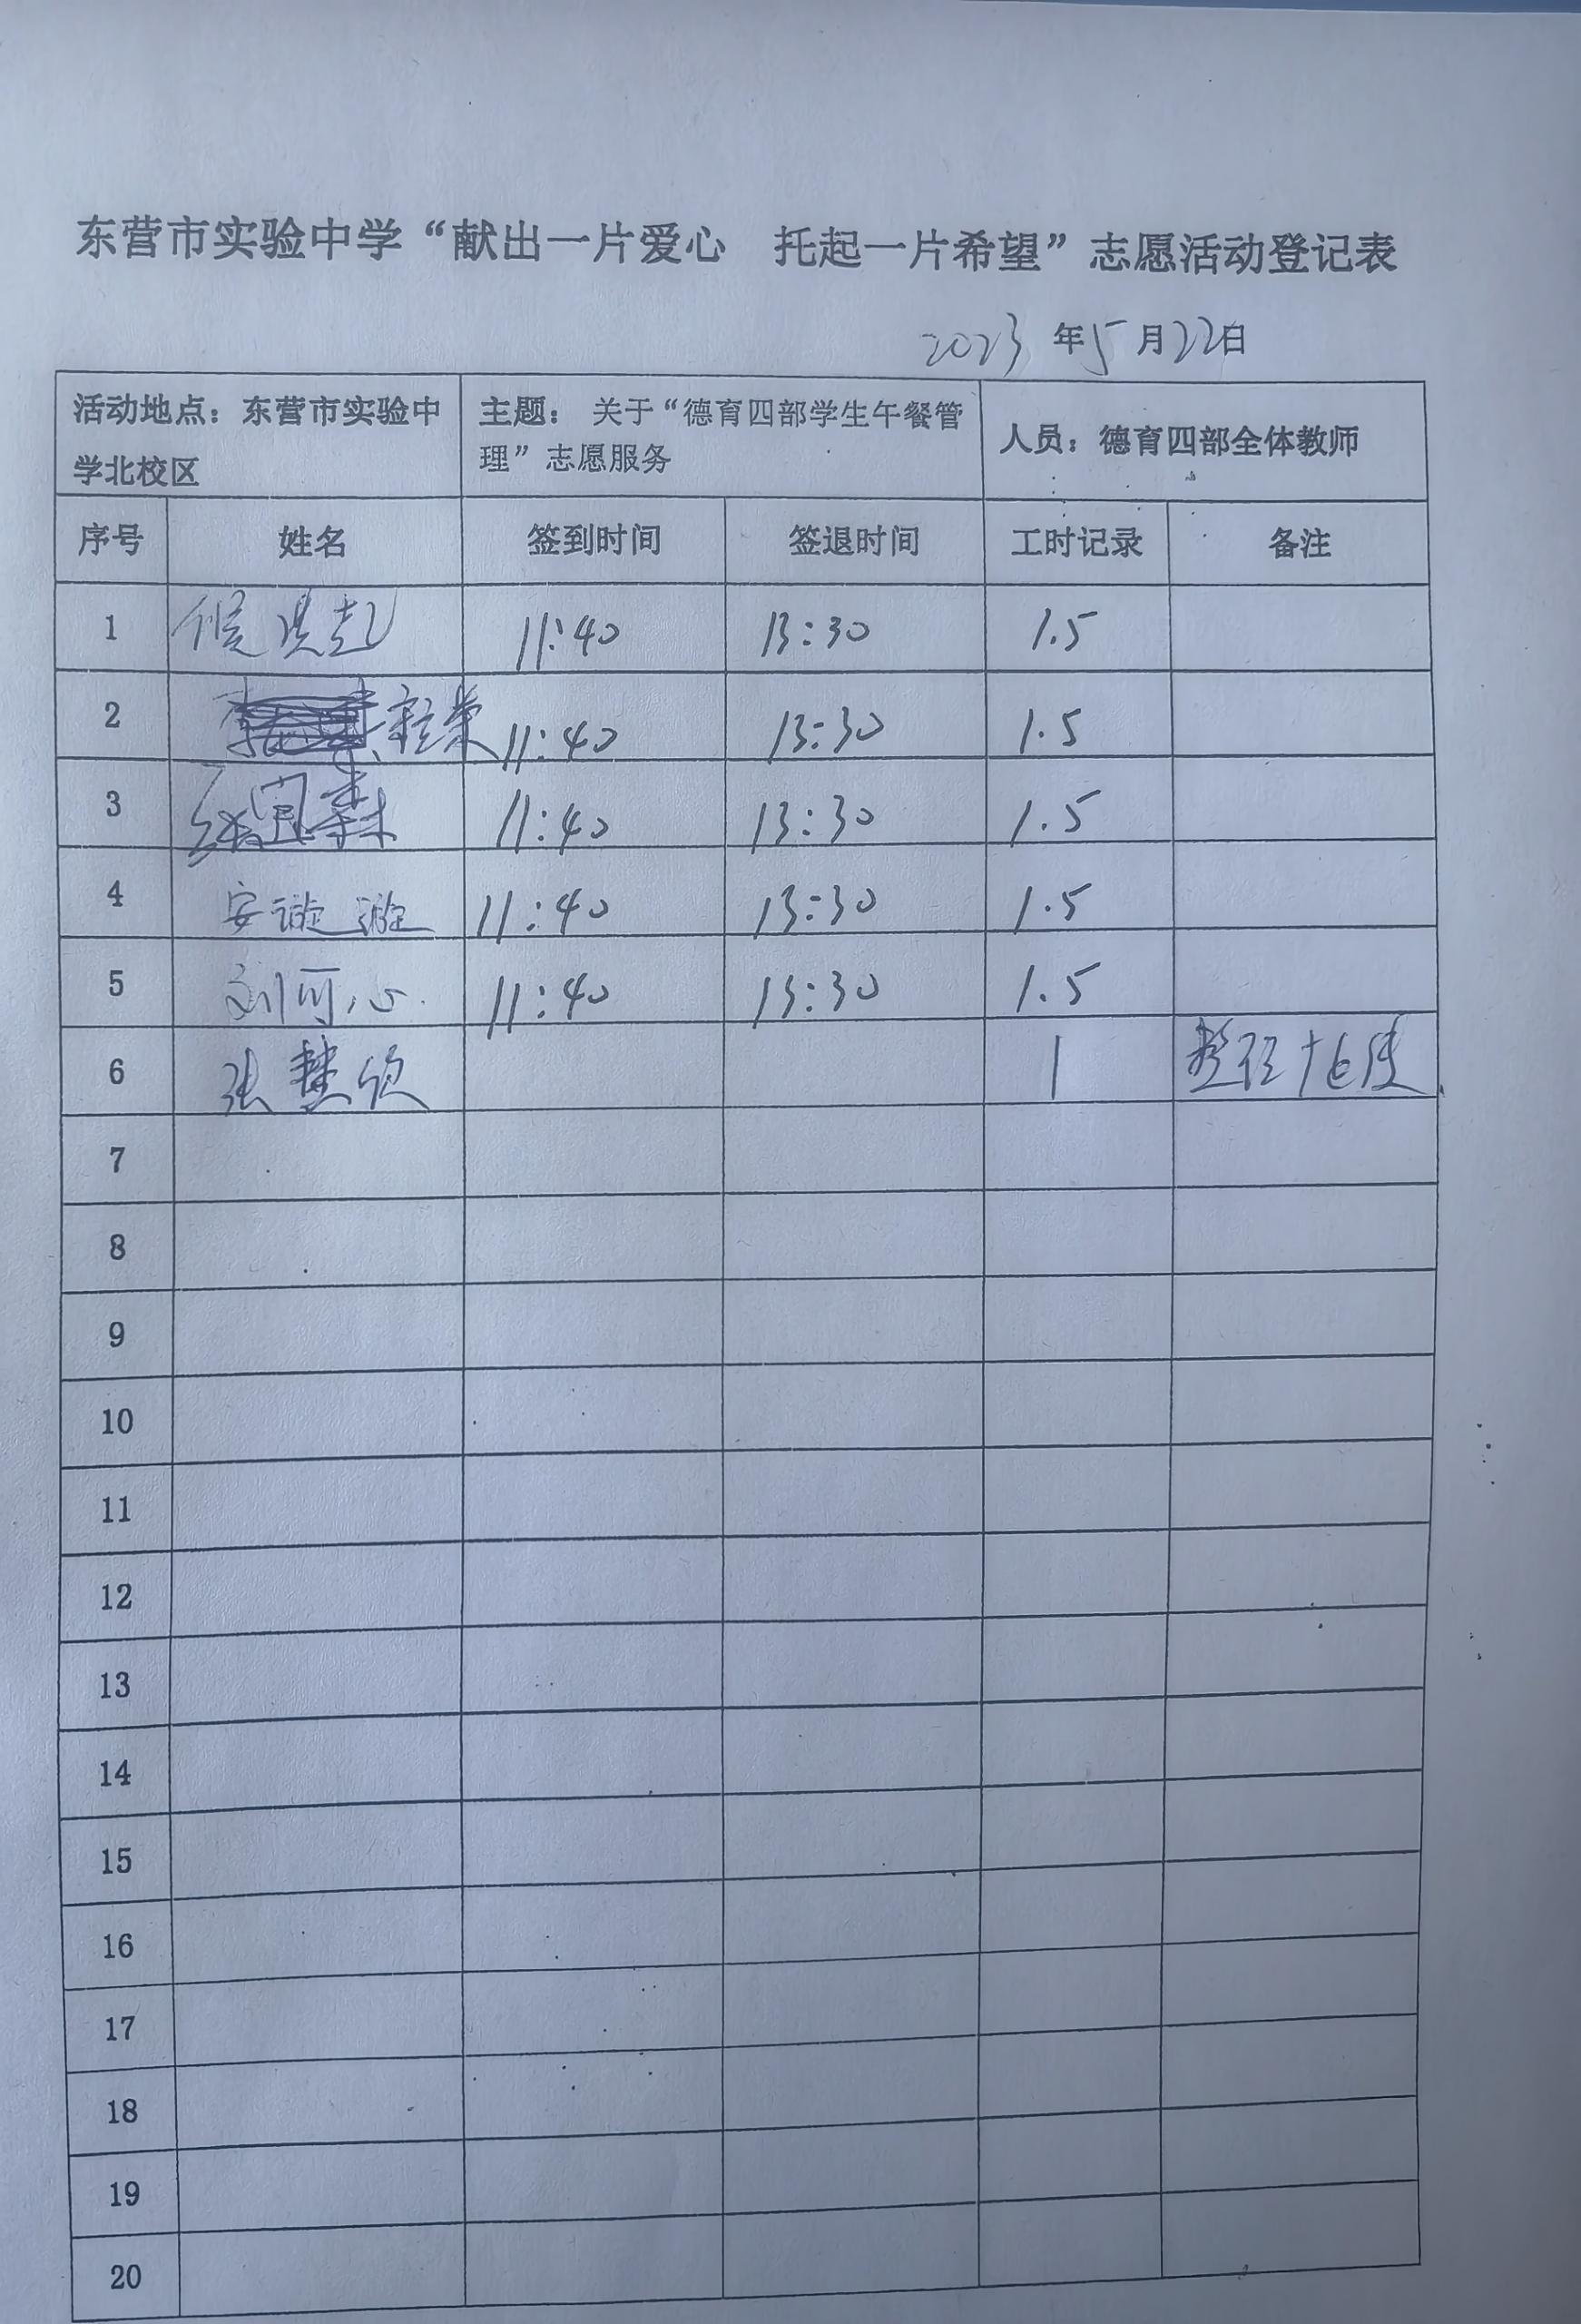 东营市实验中学“献出一片爱心 托起一片希望”志愿活动登记表
2023年5月22日
活动地点：东营市实验中
学北校区
主题： 关于“德育四部学生午餐管
理”志愿服务
人员：德育四部全体教师
序号 姓名 签到时间 签退时间 工时记录 备注
1 11:40 13:30 1.5
2 11:40 13:30 1.5
3 11:40 13:30 1.5
4 安 11:40 13:30 1.5
5 刘可心 11:40 13:30 1.5
6 张慧欣 1
7
8
9
10
11
12
13
14
15
16
17
18
19
20